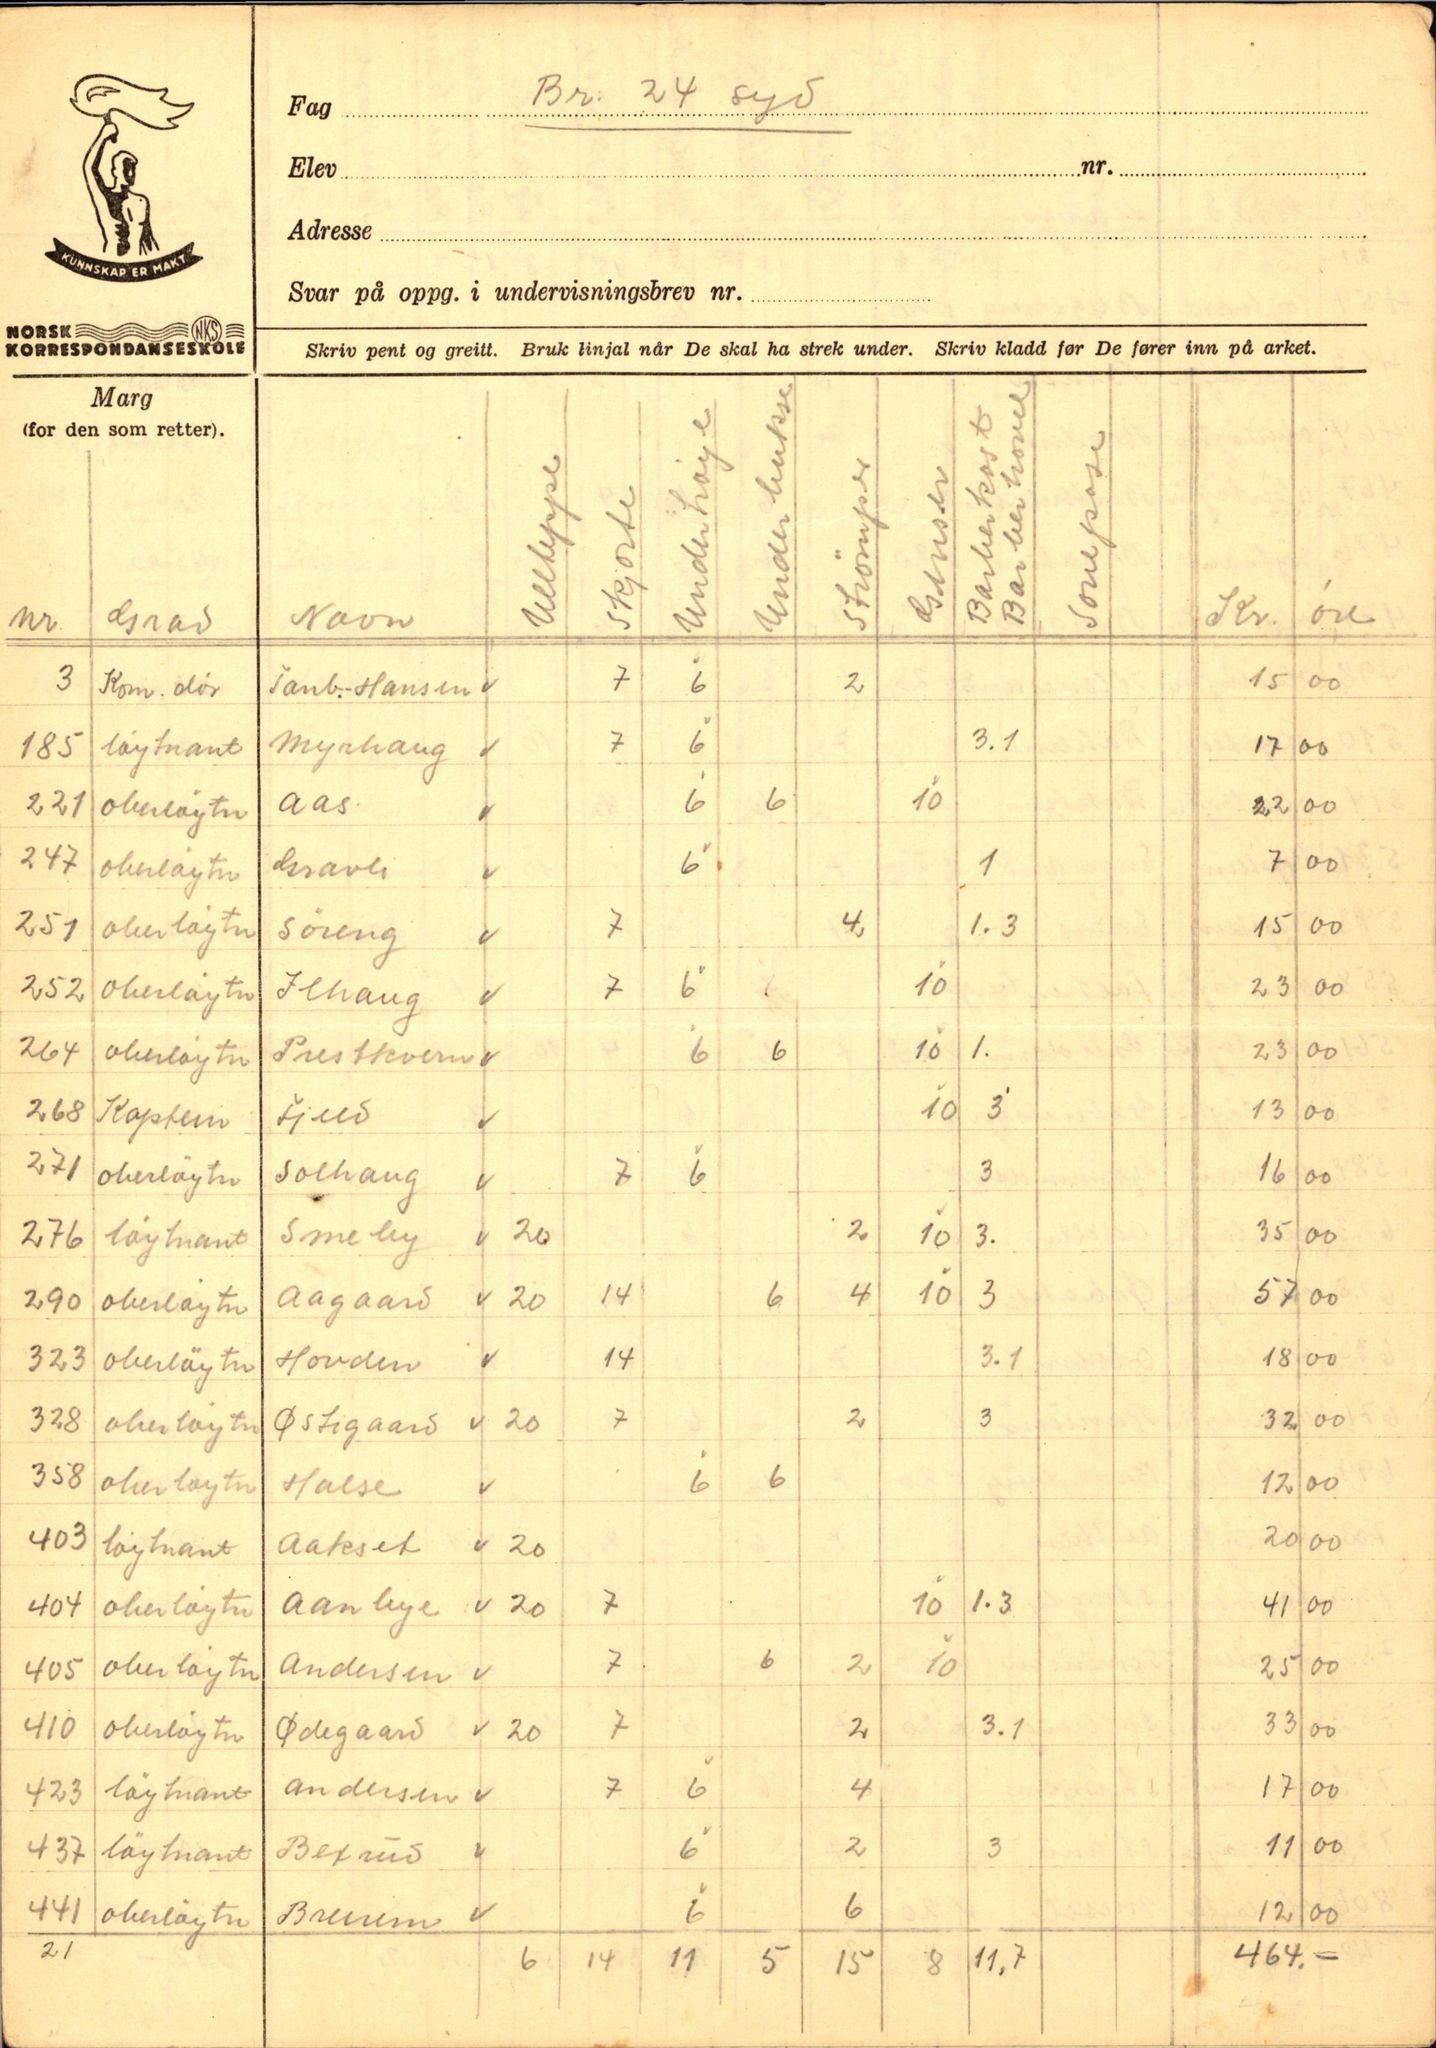 Fag Br. 24 syd
Elev nr.
Adresse
Svar på oppg. i undervisningsbrev nr.
KUNNSKAP ER MAKT
NORSK NKS
KORRESPONDANSESKOLE
Skriv pent og greitt. Bruk linjal når De skal ha strek under. Skriv kladd før De fører inn på arket.
Marg
(for den som retter).
nr. Grad Navn Ullteppe Skjorte Undertröye Underbukse Strömper Genser Barberkost Barberhövel Sovepose Kr. öre
3 Kom. dör Tanb.-Hansen v 7 6 2 15 00
185 löytnant Myrhaug v 7 6 3.1 17 00
221 oberlöytn Aas v 6 6 10 22 00
247 oberlöytn Gravli v 6 1 7 00
251 oberlöytn Söreng v 7 4 1.3 15 00
252 oberlöytn Ilhaug v 7 6 10 23 00
264 oberlöytn Prestkvern v 6 6 10 1. 23 00
268 Kaptein Tjeld v 10 3 13 00
271 oberlöytn Solhaug v 7 6 3 16 00
276 löytnant Smeby v 20 2 10 3. 35 00
290 oberlöytn Aagaard v 20 14 6 4 10 3 57 00
323 oberlöytn Hovden v 14 3.1 18 00
328 oberlöytn Østgaard v 20 7 2 3 32 00
358 oberlöytn Halse v 6 6 12 00
403 löytnant Aakset v 20 20 00
404 oberlöytn Aanbye v 20 7 10 1.3 41 00
405 oberlöytn Andersen v 7 6 2 10 25 00
410 oberlöytn Ødegaard v 20 7 2 3.1 33 00
423 löytnant Andersen v 7 6 4 17 00
437 löytnant Bexrud v 6 2 3 11 00
441 oberlöytn v 6 6 12 00
21 6 14 11 5 15 8 11,7 464.-